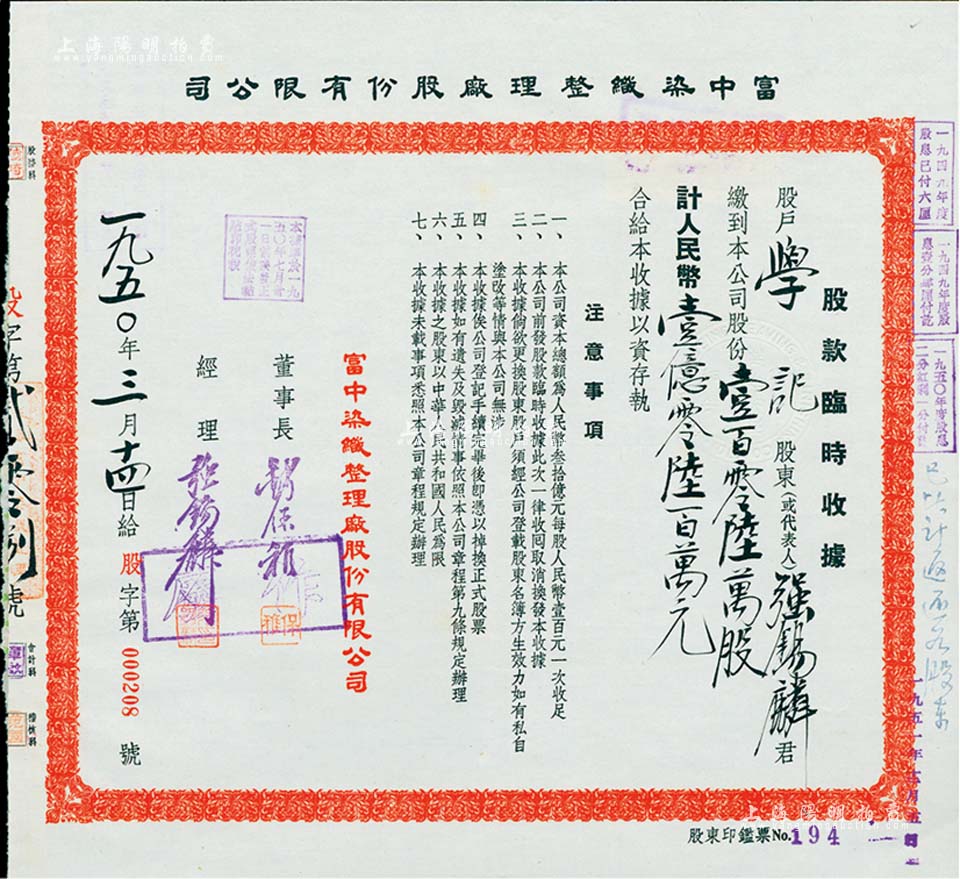 上海陽明拍賣
www.yangmingauction.com
富中染織整理廠股份有限公司
股款臨時收據
股戶 學記 股東(或代表人) 強錫麟 君
繳到本公司股份壹百零陸萬股
計人民幣壹億零陸百萬元
合給本收據以資存執
注意事項
一、本公司資本總額為人民幣叁拾億元每股人民幣壹百元一次收足
二、本公司前發股款臨時收據此次一律收回取消換發本收據
三、本收據倘欲更換股東股戶須經公司登載股東名簿方生效力如有私自
塗改等情與本公司無涉
四、本收據俟公司登記手續完畢後即憑以掉換正式股票
五、本收據如有遺失及毀滅情事依照本公司章程第九條規定辦理
六、本收據之股東以中華人民共和國人民為限
七、本收據未載事項悉照本公司章程規定辦理
富中染織整理廠股份有限公司
董事長
經理 強錫麟
一九五〇年三月十四日給
股字第 000208 號
股東印鑑票No. 194
一九四九年度
股息已付六厘
一九四九年度股
一九五〇年度股息
一九五一年
股務科
會計科
稽核科
字第貳零捌號
上海陽明拍賣
www.yangmingauction.com